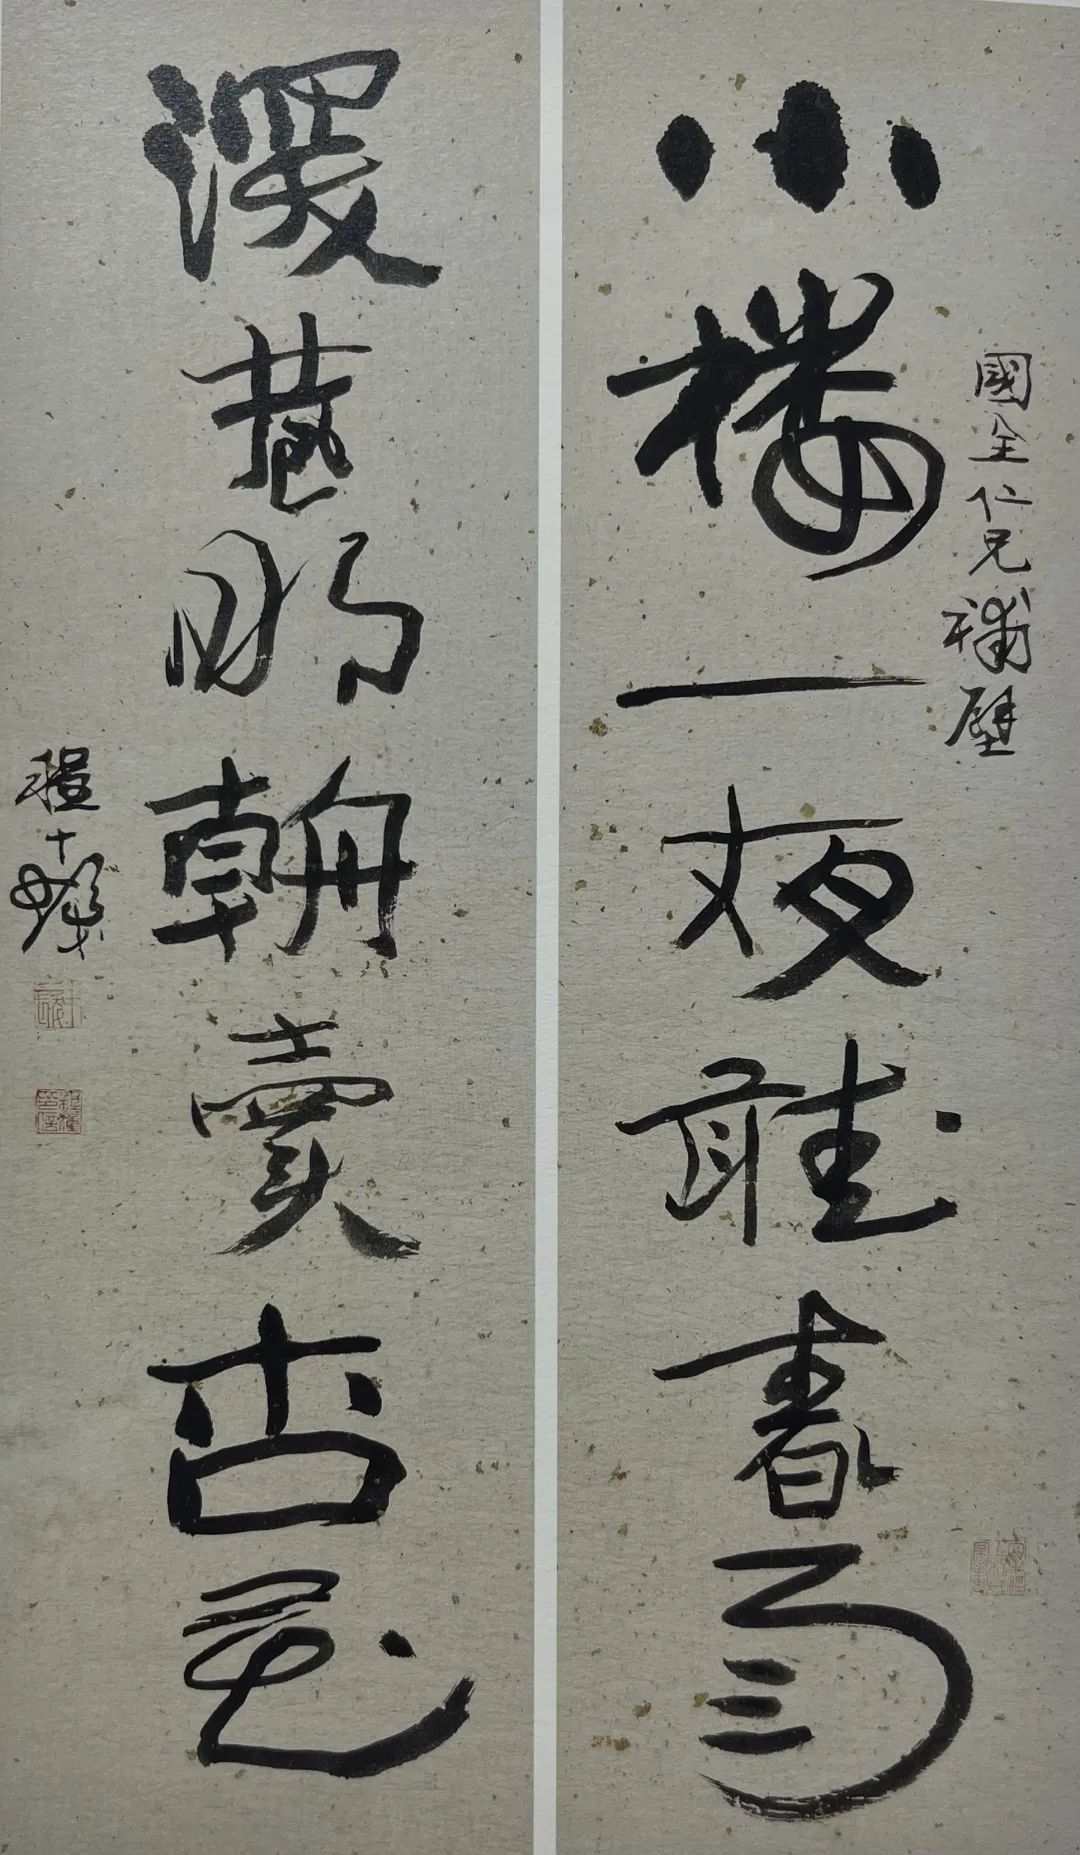 國全仁兄補壁
小樓一夜聽春雨
深巷明朝賣杏花
程十髮